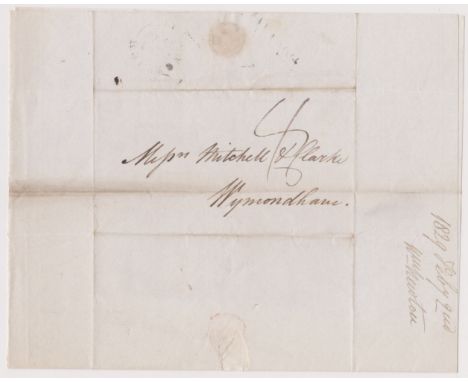 4
Messrs Mitchell & Clarke
Wymondham.
1829 Feby 2nd
Wm Newton